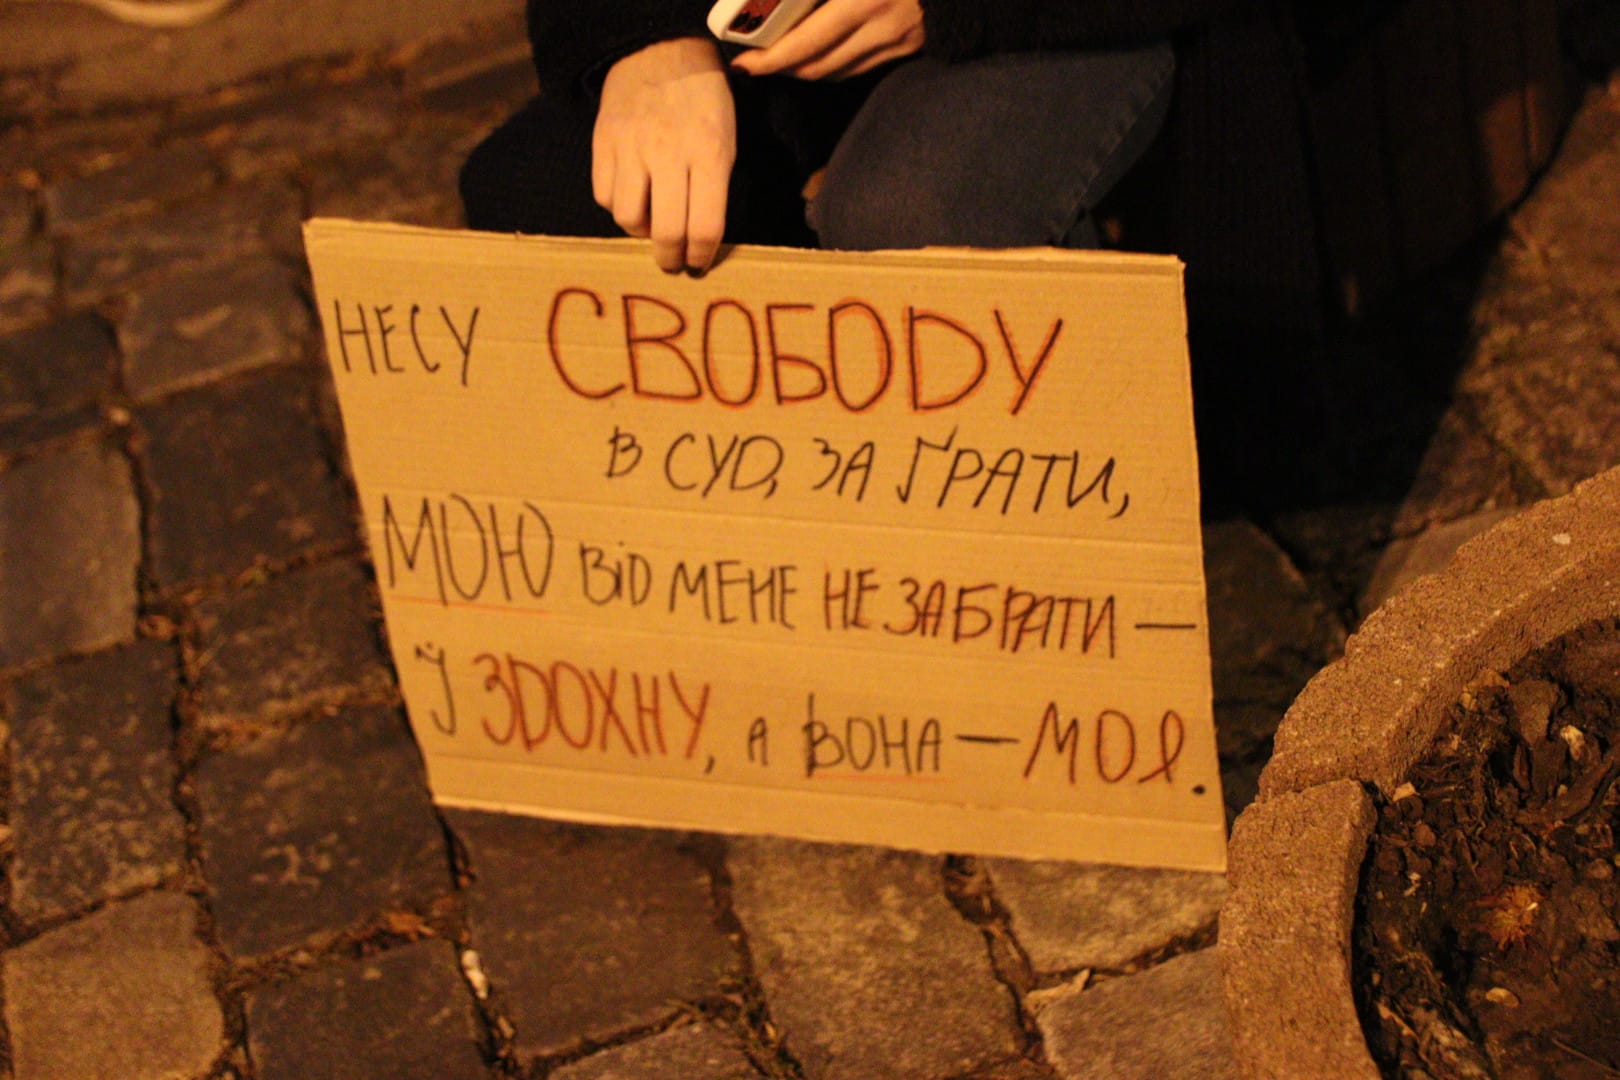 НЕСУ СВОБОДУ
В СУД, ЗА ҐРАТИ,
МОЮ ВІД МЕНЕ НЕ ЗАБРАТИ —
Й ЗДОХНУ, А ВОНА — МОЯ.